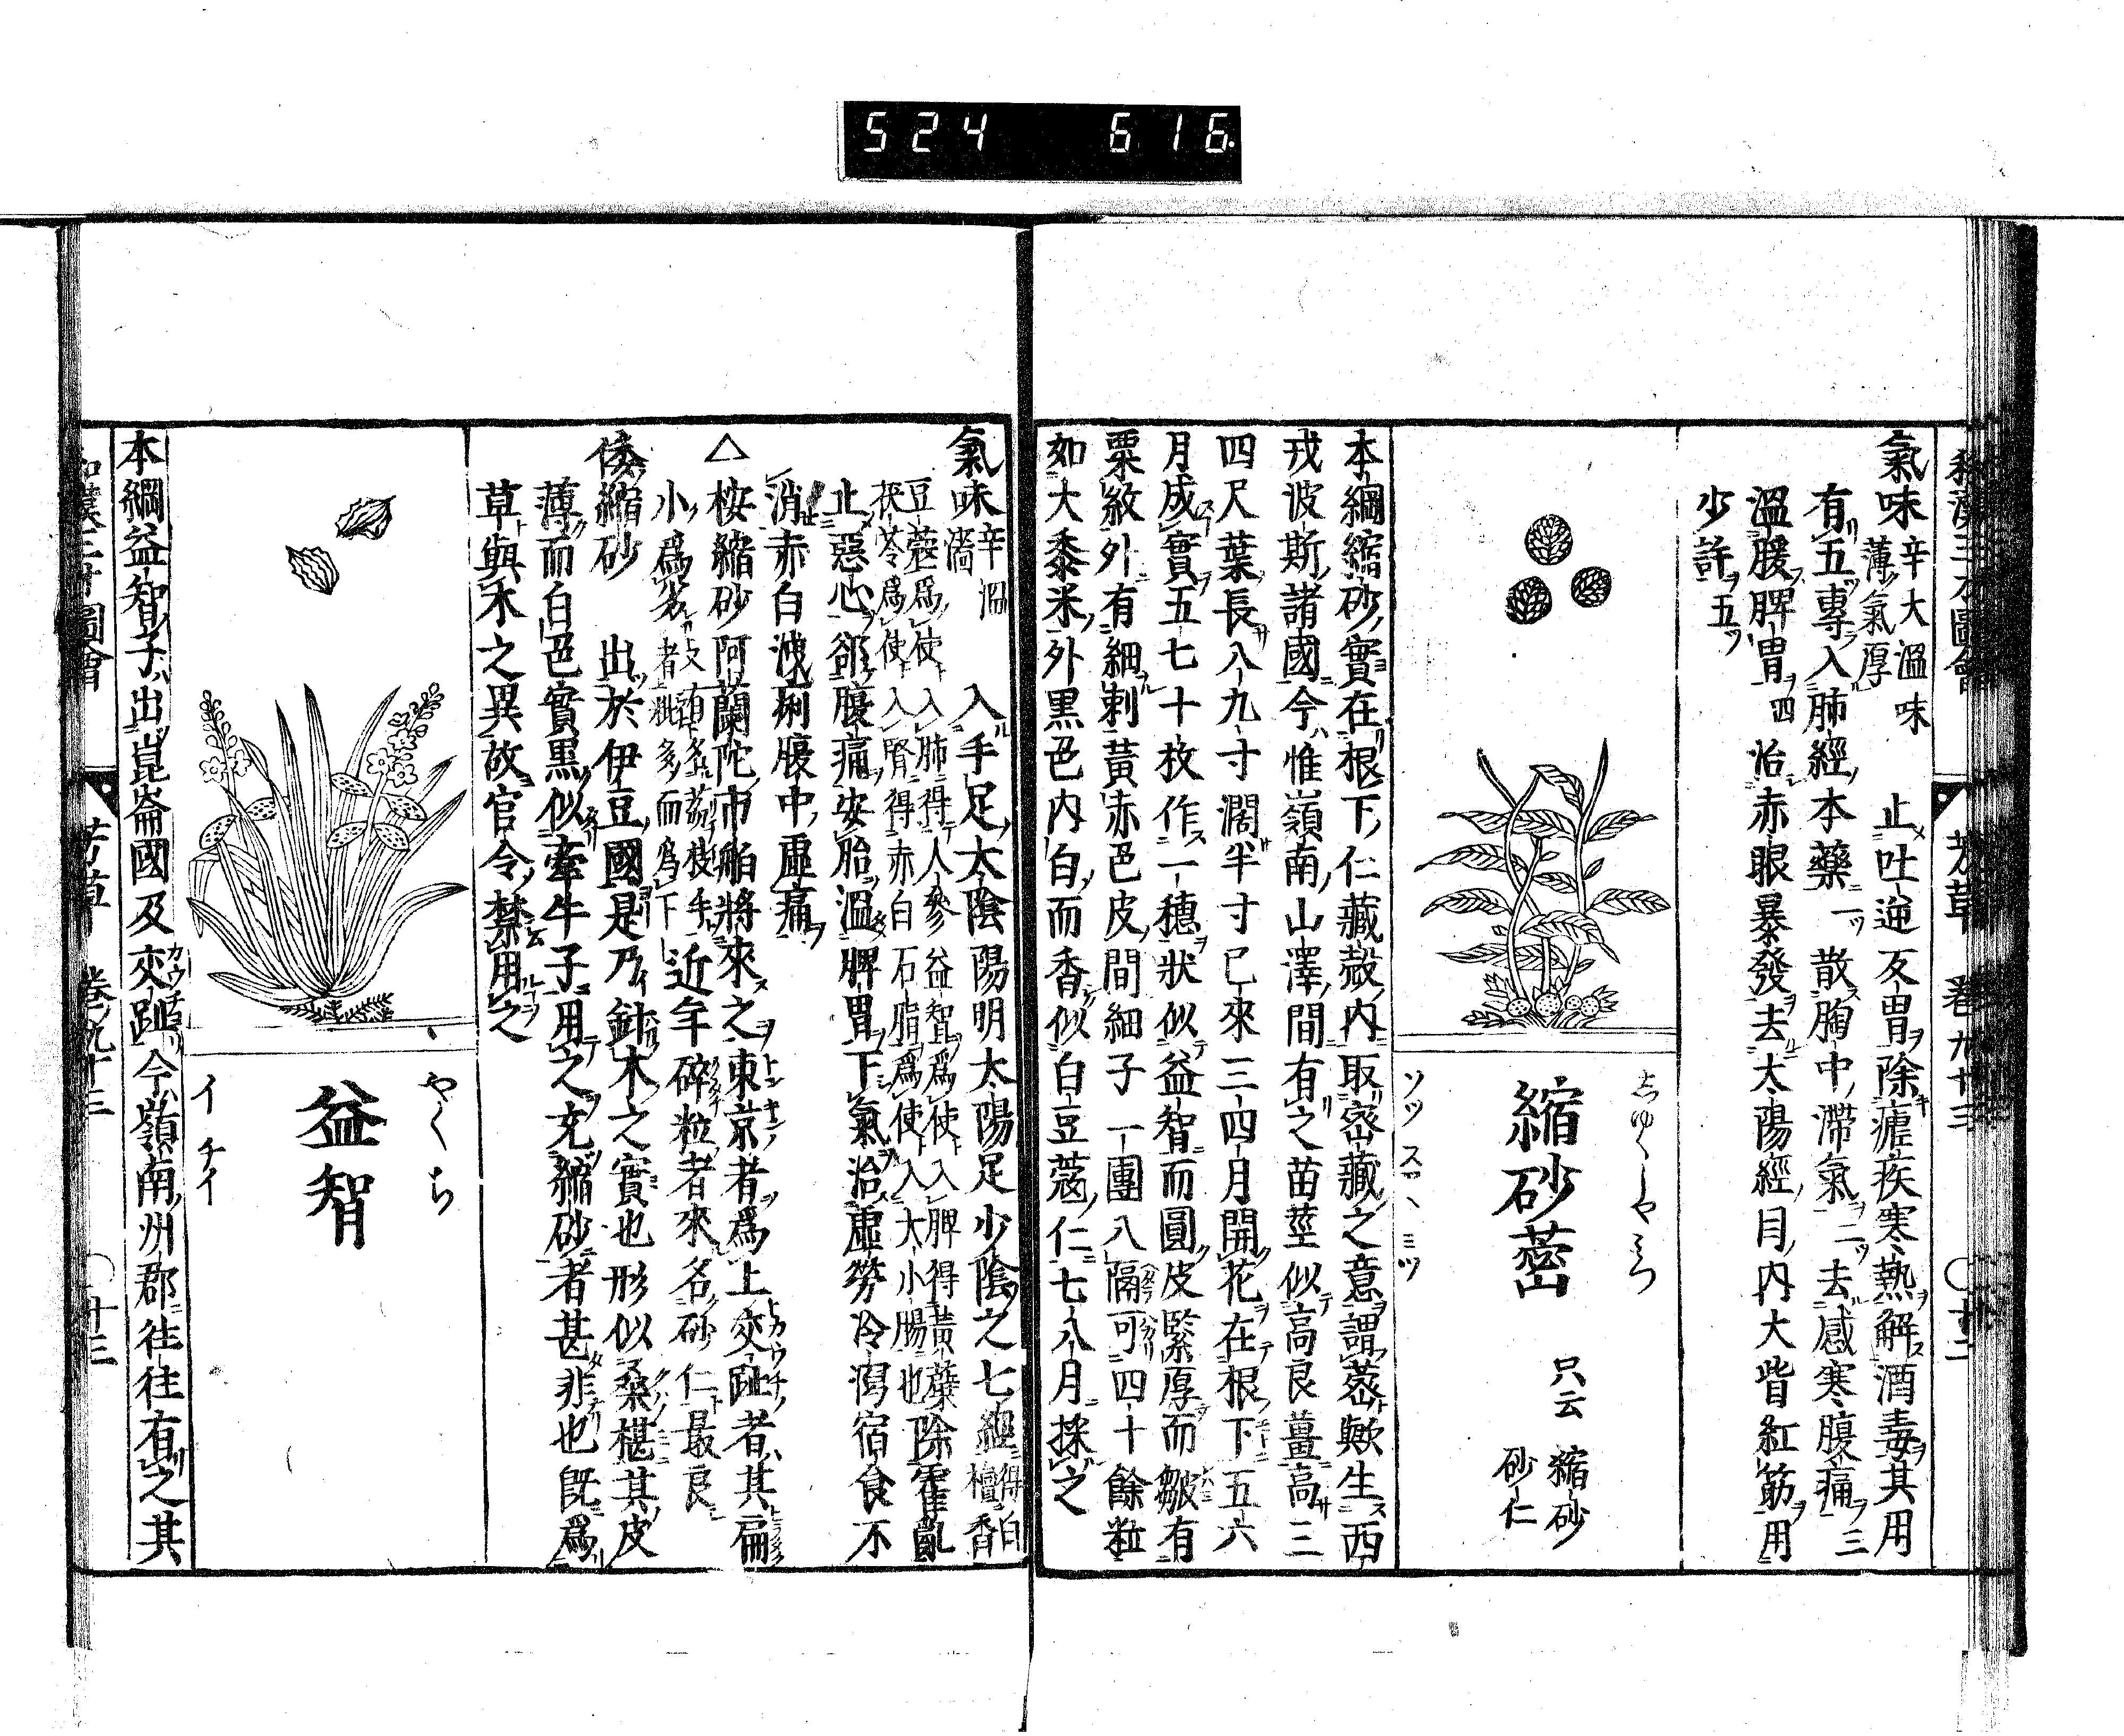 524 616
和漢三才圖會 芳草 卷九十三 ○廿二
氣味 辛大溫味薄氣厚 止吐逆反胃除瘧疾寒熱解酒毒其用
有五專入肺經本藥一散胸中滯氣二去感寒腹痛三
溫腹脾胃四怡赤眼暴發去太陽經目內大眥紅筋用
少許五
しゆくしやみつ
縮砂蔤
只云縮砂
砂仁
ソツスマヽミツ
本綱縮砂實在根下仁藏殻內取密藏之意謂蔤歟生西
戎波斯諸國今惟嶺南山澤間有之苗莖似高良薑高三
四尺葉長八九寸濶半寸已來三四月開花在根下五六
月成實五七十枚作一穗狀似益智而圓皮緊厚而皺有
粟紋外有細刺黃赤色皮間細子一團八隔可四十餘粒
如大黍米外黒色內白而香似白豆蔻仁七八月採之
氣味 辛溫濇 入手足太陰陽明太陽足少陰之七經 得白檀香
豆蔻爲使入肺得人參益智爲使入脾得黃蘗
茯苓爲使入腎得赤白石脂爲使入大小腸也 除霍亂
止惡心郤腹痛安胎溫脾胃下氣治虛勞冷瀉宿食不
消赤白洩痢腹中虛痛
△桉縮砂阿蘭陀市舶將來之東京者爲上交趾者其扁
小爲劣 近年碎粒者來名砂仁最良
倭縮砂 出於伊豆國是乃針木之實也形似桑椹其皮
薄而白色實黒似牽牛子用之充縮砂者甚非也既爲
草與木之異故官令禁用之
やくち
益智
イ チイ
本綱益智子出崑崙國及交趾今嶺南州郡往往有之其
和漢三才圖會 芳草 卷九十三 ○廿三